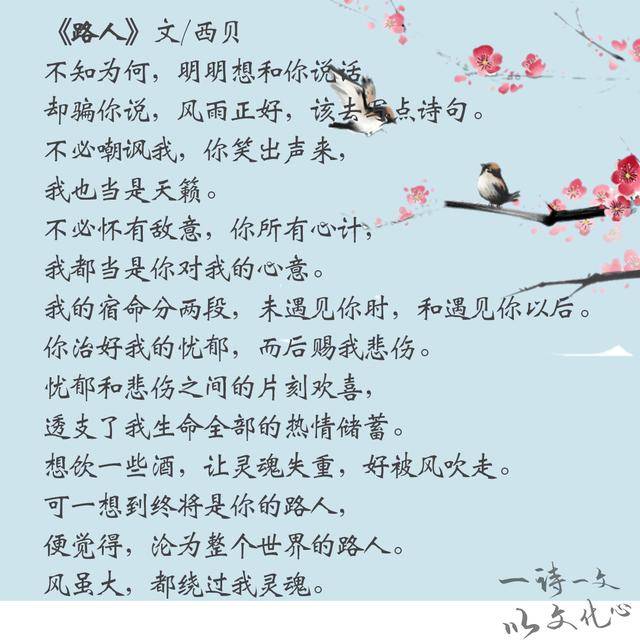 《路人》文/西贝
不知为何，明明想和你说话，
却骗你说，风雨正好，该去写点诗句。
不必嘲讽我，你笑出声来，
我也当是天籁。
不必怀有敌意，你所有心计，
我都当是你对我的心意。
我的宿命分两段，未遇见你时，和遇见你以后。
你治好我的忧郁，而后赐我悲伤。
忧郁和悲伤之间的片刻欢喜，
透支了我生命全部的热情储蓄。
想饮一些酒，让灵魂失重，好被风吹走。
可一想到终将是你的路人，
便觉得，沦为整个世界的路人。
风虽大，都绕过我灵魂。
一诗一文
以文化心